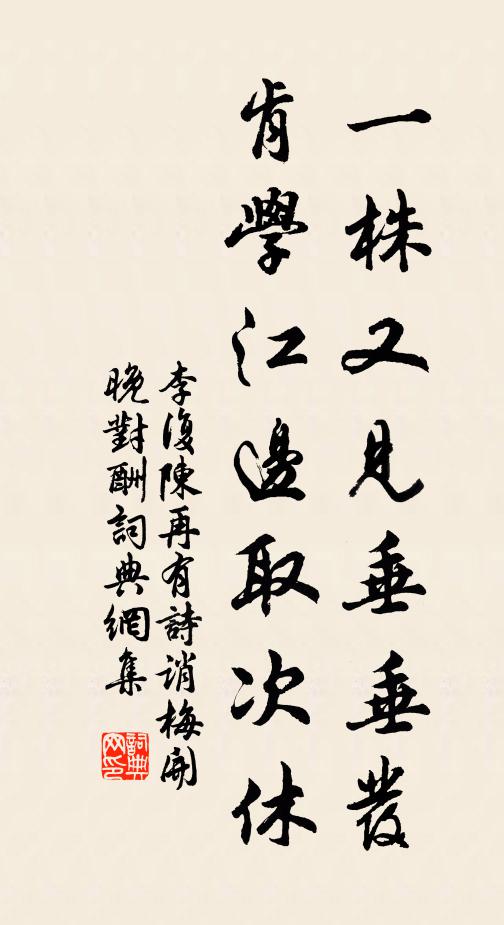 一株又見垂垂發
肯學江邊取次休
李復陳再有詩誚梅開
晚對酬詞典網集
詞典
网印